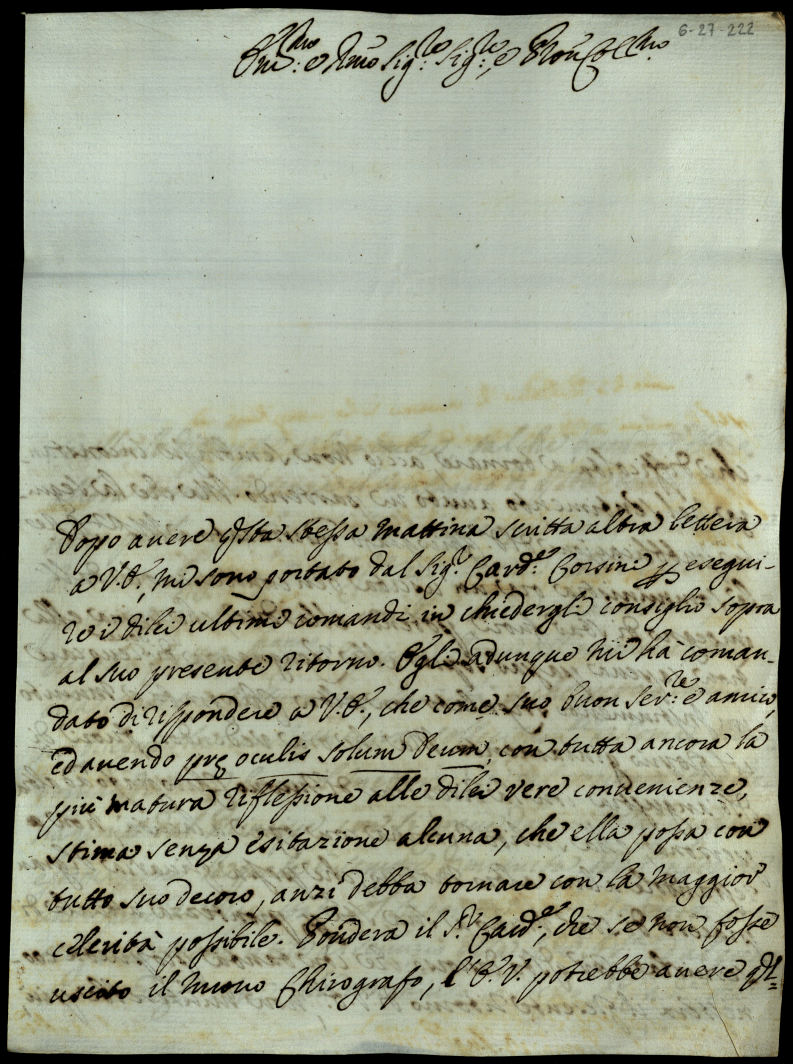 6-27-222
Em.mo: e Rmo Sig.re: Sig.re:, e Pron Col.mo.
Dopo avere qsta stessa mattina scritta altra lettera
a V.E., mi sono portato dal Sig.r Card.e: Corsini p esegui-
re i dilei ultimi comandi in chiedergli consiglio sopra
al suo presente ritorno. Egli adunque mi hà coman-
dato di rispondere a V.E., che come suo buon Ser.re: e amico,
ed avendo pre oculis solum Deum, con tutta ancora la
più matura riflessione alle dilei vere convenienze,
stima senza esitazione alcuna, che ella possa con
tutto suo decoro, anzi debba tornare con la maggior
celerità possibile. Pondera il S.r Card.e:, che se non fosse
uscito il nuovo Chirografo, l'E.V. potrebbe avere